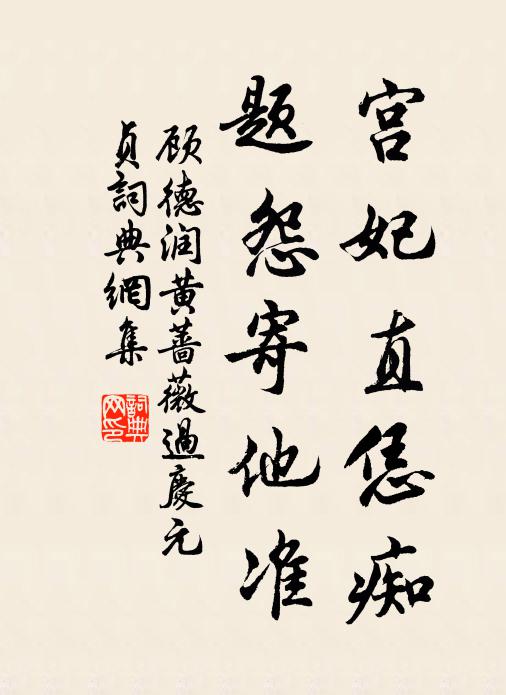 宫妃直恁痴
题怨寄他准
顾德润黄蔷薇过庆元
贞词典網集
詞典网印